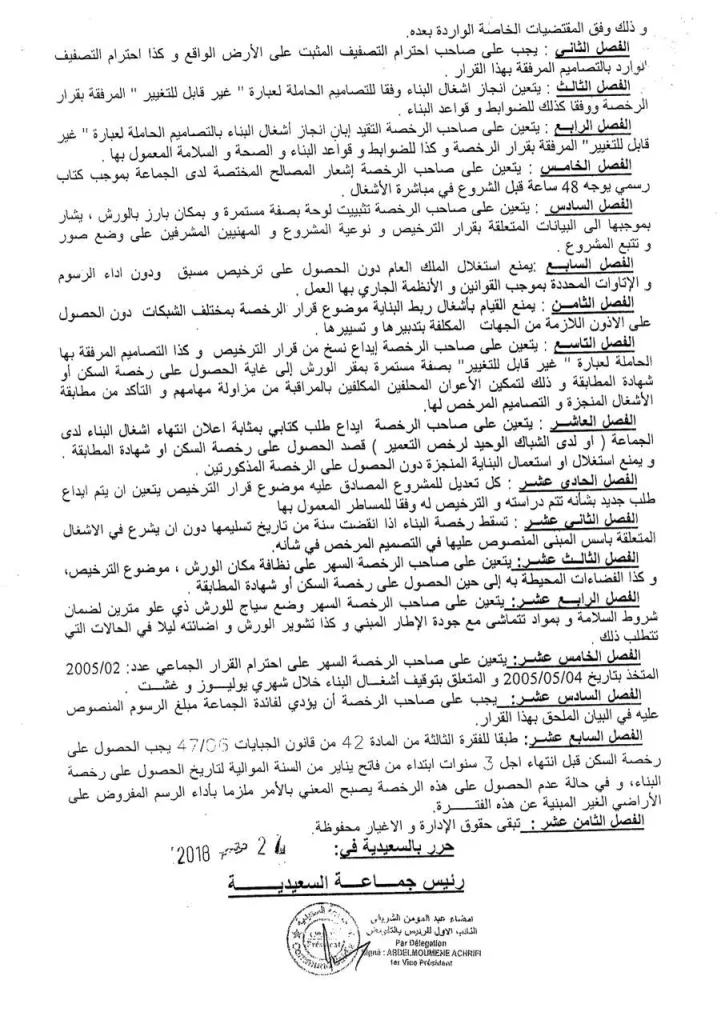 و ذلك وفق المقتضيات الخاصة الواردة بعده.
الفصل الثاني : يجب على صاحب احترام التصفيف المثبت على الأرض الواقع و كذا احترام التصفيف
الوارد بالتصاميم المرفقة بهذا القرار .
الفصل الثالث : يتعين انجاز اشغال البناء وفقا للتصاميم الحاملة لعبارة " غير قابل للتغيير " المرفقة بقرار
الرخصة ووفقا كذلك للضوابط و قواعد البناء .
الفصل الرابع : يتعين على صاحب الرخصة التقيد إبان انجاز أشغال البناء بالتصاميم الحاملة لعبارة " غير
قابل للتغيير" المرفقة بقرار الرخصة و كذا للضوابط و قواعد البناء و الصحة و السلامة المعمول بها .
الفصل الخامس : يتعين على صاحب الرخصة إشعار المصالح المختصة لدى الجماعة بموجب كتاب
رسمي يوجه 48 ساعة قبل الشروع في مباشرة الأشغال .
الفصل السادس : يتعين على صاحب الرخصة تثبييت لوحة بصفة مستمرة و بمكان بارز بالورش ، يشار
بموجبها الى البيانات المتعلقة بقرار الترخيص و نوعية المشروع و المهنيين المشرفين على وضع صور
و تتبع المشروع .
الفصل السابع :يمنع استغلال الملك العام دون الحصول على ترخيص مسبق ودون اداء الرسوم
و الإتاوات المحددة بموجب القوانين و الأنظمة الجاري بها العمل .
الفصل الثامن : يمنع القيام بأشغال ربط البناية موضوع قرار الرخصة بمختلف الشبكات دون الحصول
على الاذون اللازمة من الجهات المكلفة بتدبيرها و تسييرها .
الفصل التاسع : يتعين على صاحب الرخصة إيداع نسخ من قرار الترخيص و كذا التصاميم المرفقة بها
الحاملة لعبارة " غير قابل للتغيير" بصفة مستمرة بمقر الورش إلى غاية الحصول على رخصة السكن أو
شهادة المطابقة و ذلك لتمكين الأعوان المحلفين المكلفين بالمراقبة من مزاولة مهامهم و التأكد من مطابقة
الأشغال المنجزة و التصاميم المرخص لها.
الفصل العاشر : يتعين على صاحب الرخصة ايداع طلب كتابي بمثابة اعلان انتهاء اشغال البناء لدى
الجماعة ( او لدى الشباك الوحيد لرخص التعمير ) قصد الحصول على رخصة السكن او شهادة المطابقة .
و يمنع استغلال او استعمال البناية المنجزة دون الحصول على الرخصة المذكورتين .
الفصل الحادي عشر : كل تعديل للمشروع المصادق عليه موضوع قرار الترخيص يتعين ان يتم ايداع
طلب جديد بشأنه تتم دراسته و الترخيص له وفقا للمساطر المعمول بها
الفصل الثاني عشر : تسقط رخصة البناء اذا انقضت سنة من تاريخ تسليمها دون ان يشرع في الاشغال
المتعلقة بأسس المبنى المنصوص عليها في التصميم المرخص في شأنه.
الفصل الثالث عشر: يتعين على صاحب الرخصة السهر على نظافة مكان الورش ، موضوع الترخيص،
و كذا الفضاءات المحيطة به إلى حين الحصول على رخصة السكن أو شهادة المطابقة .
الفصل الرابع عشر: يتعين على صاحب الرخصة السهر وضع سياج للورش ذي علو مترين لضمان
شروط السلامة و بمواد تتماشى مع جودة الإطار المبني و كذا تشوير الورش و اضائته ليلا في الحالات التي
تتطلب ذلك .
الفصل الخامس عشر: يتعين على صاحب الرخصة السهر على احترام القرار الجماعي عدد: 2005/02
المتخذ بتاريخ 2005/05/04 و المتعلق بتوقيف أشغال البناء خلال شهري يوليوز و غشت .
الفصل السادس عشر: يجب على صاحب الرخصة أن يؤدي لفائدة الجماعة مبلغ الرسوم المنصوص
عليه في البيان الملحق بهذا القرار.
الفصل السابع عشر: طبقا للفقرة الثالثة من المادة 42 من قانون الجبايات 47/06 يجب الحصول على
رخصة السكن قبل انتهاء اجل 3 سنوات ابتداء من فاتح يناير من السنة الموالية لتاريخ الحصول على رخصة
البناء، و في حالة عدم الحصول على هذه الرخصة يصبح المعني بالأمر ملزما بأداء الرسم المفروض على
الأراضي الغير المبنية عن هذه الفترة.
الفصل الثامن عشر : تبقى حقوق الإدارة و الاغيار محفوظة.
حرر بالسعيدية في: 2018
رئيس جماعة السعيدية
امضاء عبد المومن الشريفي
النائب الاول للرئيس بالتفويض
Par Délégation
Signé : ABDELMOUMENE ACHRIFI
1er Vice Président